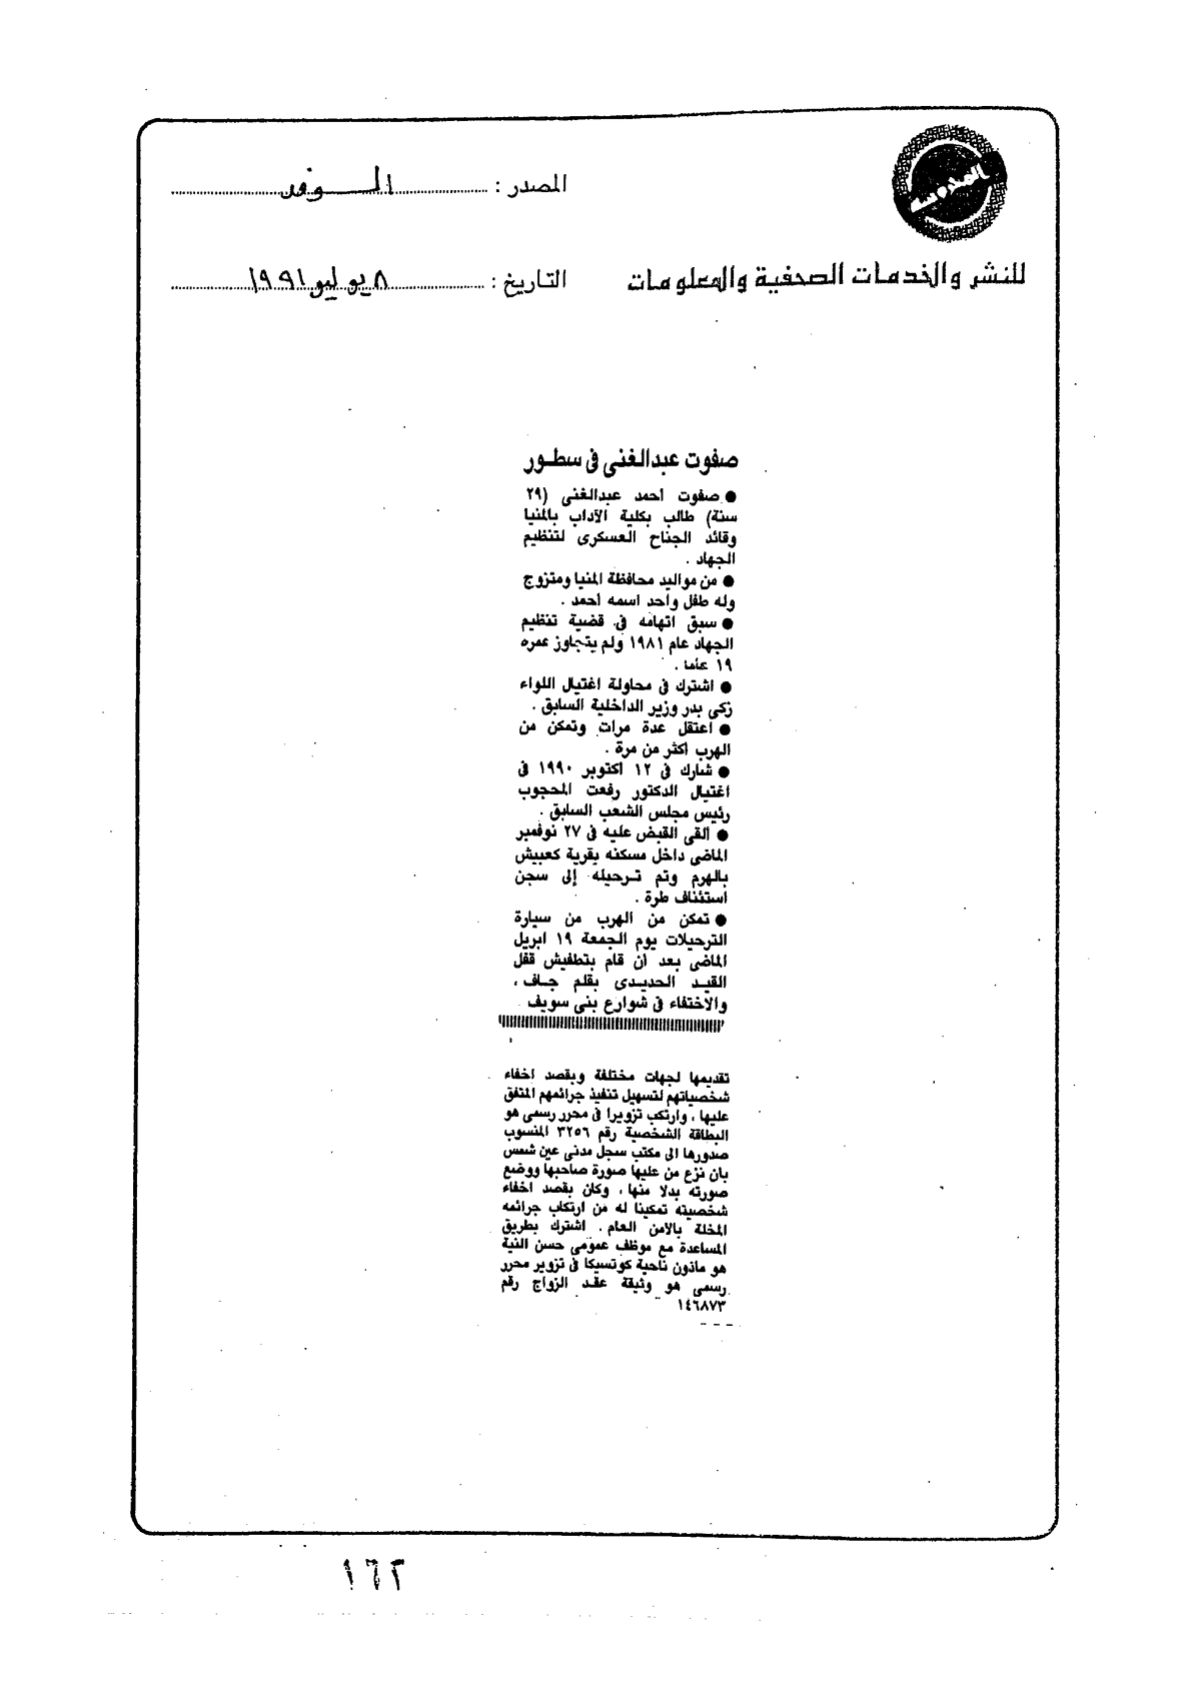 المصدر : الوفد
للنشر والخدمات الصحفية والمعلومات
التاريخ : ٨ يوليو ١٩٩١
صفوت عبدالغنى فى سطور
● صفوت أحمد عبدالغنى (٢٩
سنة) طالب بكلية الآداب بالمنيا
وقائد الجناح العسكرى لتنظيم
الجهاد .
● من مواليد محافظة المنيا ومتزوج
وله طفل واحد اسمه أحمد .
● سبق اتهامه فى قضية تنظيم
الجهاد عام ١٩٨١ ولم يتجاوز عمره
١٩ عاما .
● اشترك فى محاولة اغتيال اللواء
زكى بدر وزير الداخلية السابق .
● اعتقل عدة مرات وتمكن من
الهرب أكثر من مرة .
● شارك فى ١٢ أكتوبر ١٩٩٠ فى
اغتيال الدكتور رفعت المحجوب
رئيس مجلس الشعب السابق .
● ألقى القبض عليه فى ٢٧ نوفمبر
الماضى داخل مسكنه بقرية كعبيش
بالهرم وتم ترحيله إلى سجن
استئناف طرة .
● تمكن من الهرب من سيارة
الترحيلات يوم الجمعة ١٩ ابريل
الماضى بعد أن قام بتطفيش قفل
القيد الحديدى بقلم جاف ،
والاختفاء فى شوارع بنى سويف
تقديمها لجهات مختلفة وبقصد اخفاء
شخصياتهم لتسهيل تنفيذ جرائمهم المتفق
عليها ، وارتكب تزويرا فى محرر رسمى هو
البطاقة الشخصية رقم ٣٢٥٦ المنسوب
صدورها الى مكتب سجل مدنى عين شمس
بان نزع من عليها صورة صاحبها ووضع
صورته بدلا منها ، وكان بقصد اخفاء
شخصيته تمكينا له من ارتكاب جرائمه
المخلة بالأمن العام . اشترك بطريق
المساعدة مع موظف عمومى حسن النية
هو ماذون ناحية كوتسيكا فى تزوير محرر
رسمى هو وثيقة عقد الزواج رقم
١٤٦٨٧٣
١٦٢